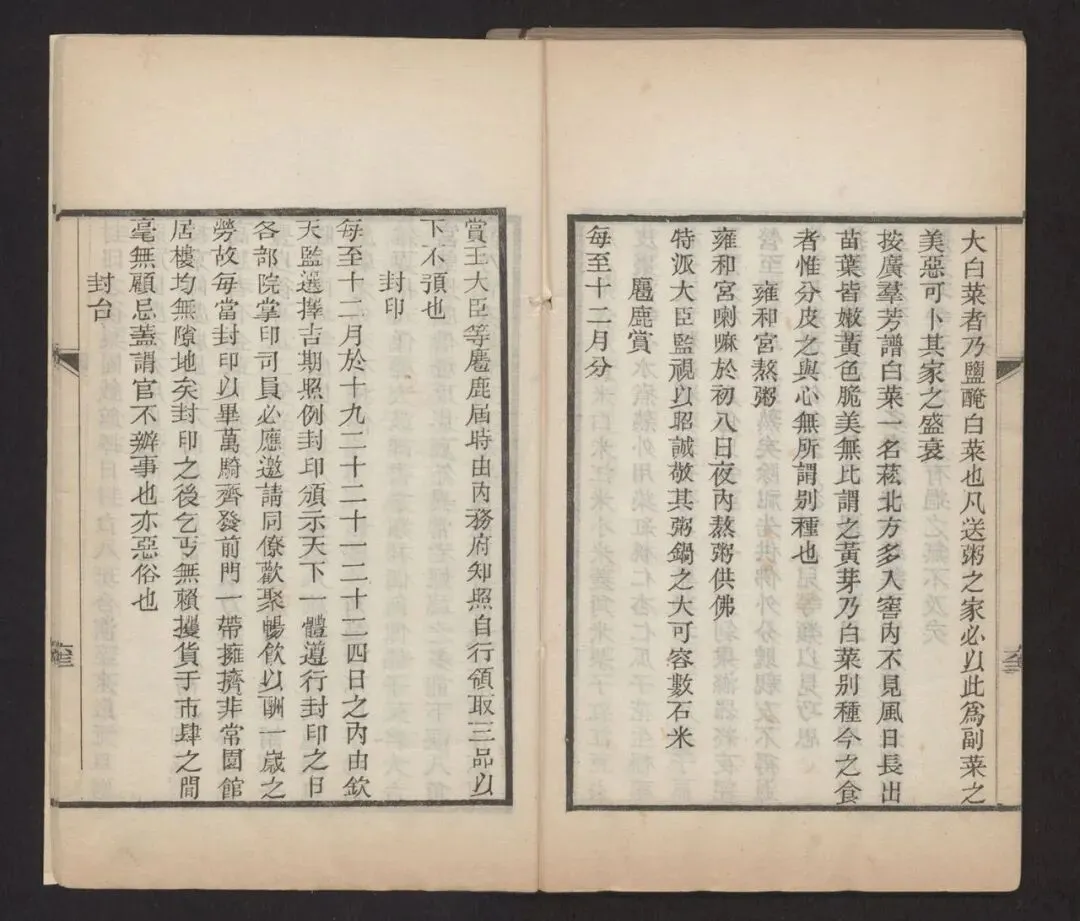 大白菜者乃鹽醃白菜也凡送粥之家必以此爲副菜之
美惡可卜其家之盛衰
按廣羣芳譜白菜一名菘北方多入窖內不見風日長出
苗葉皆嫩黃色脆美無比謂之黃芽乃白菜别種今之食
者惟分皮之與心無所謂别種也
雍和宮熬粥
雍和宮喇嘛於初八日夜內熬粥供佛
特派大臣監視以昭誠敬其粥鍋之大可容數石米
麅鹿賞
每至十二月分
賞王大臣等麅鹿屆時由內務府知照自行領取三品以
下不預也
封印
每至十二月於十九二十二十一二十二四日之內由欽
天監選擇吉期照例封印頒示天下一體遵行封印之日
各部院掌印司員必應邀請同僚歡聚暢飲以酬一歲之
勞故每當封印以畢萬騎齊發前門一帶擁擠非常園館
居樓均無隙地矣封印之後乞丐無賴攫貨于市肆之間
毫無顧忌蓋謂官不辦事也亦惡俗也
封台